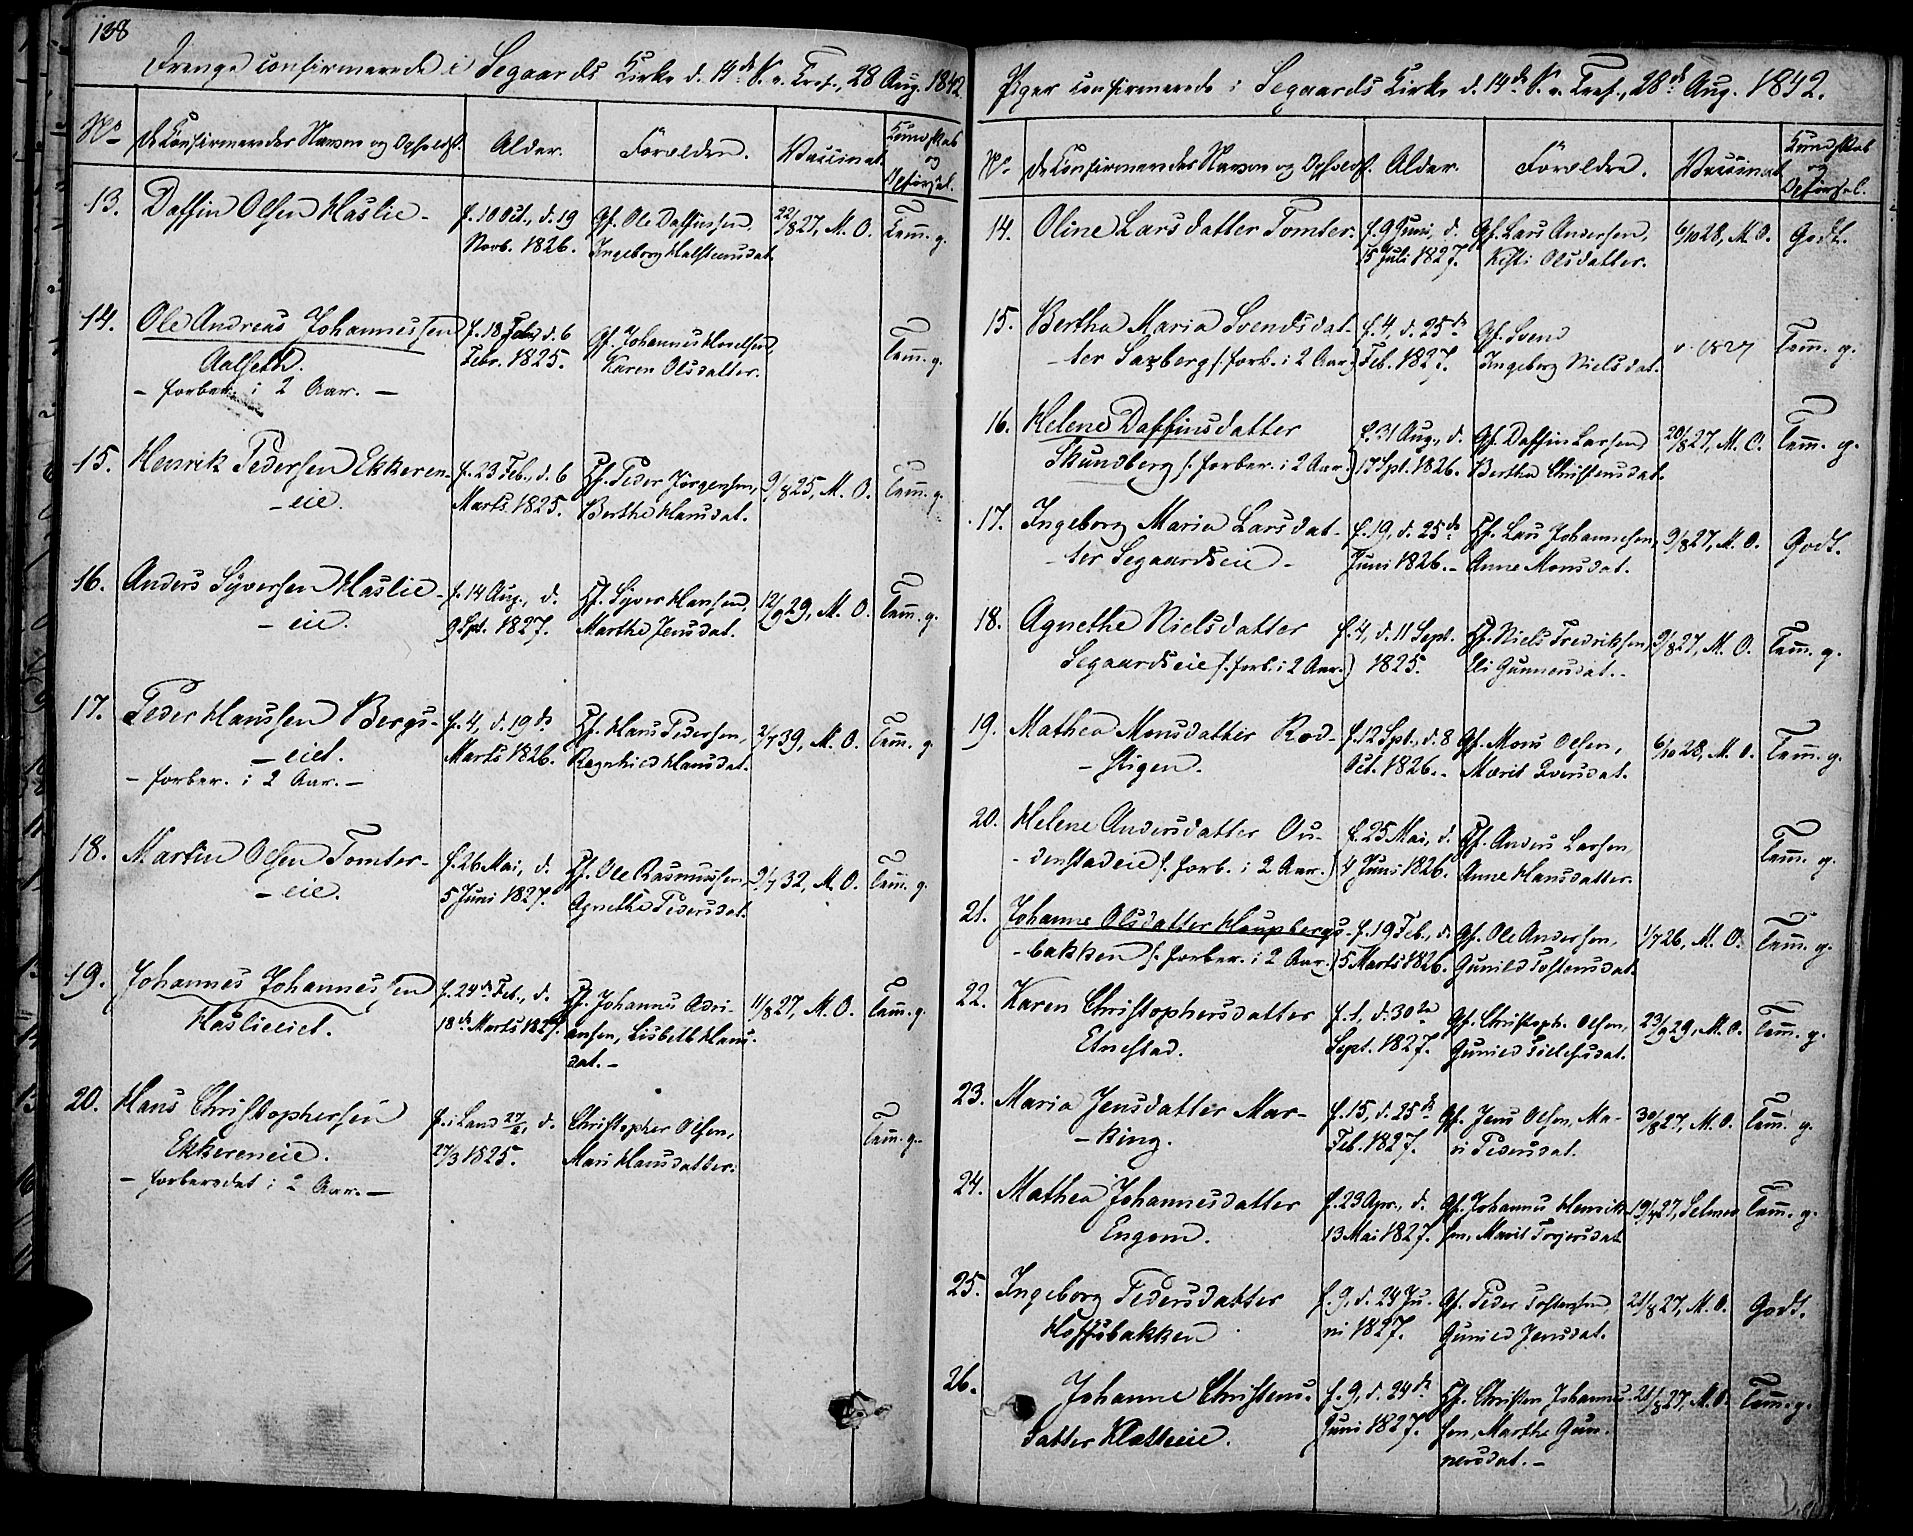 138
Drenge confirmerede i Segaards Kirke d. 14de S. e. Tref., 28 Aug. 1842
No
De Confirmeredes Navne og Opholdst.
Alder.
Forældre.
Vaccinat.
Kundskab
og
Opførsel.
13.
Daffin Olsen Haslie
f. 10 Oct., d. 19
Novb. 1826.
Gf. Ole Daffinsen,
Ingeborg Halstensdat.
22/8 27, M. O.
Tem. g.
14.
Ole Andreas Johannessen
Aalseth.
- forber. i 2 Aar. -
f. 18 d. 6
Febr. 1825.
Gf. Johannes
Karen Olsdatter.
Tem. g.
15.
Henrik Pedersen Ekkeren-
-eie.
f. 23 Feb., d. 6
Marts 1825.
Hf. Peder Jørgensen,
Berthe Hansdat.
9/8 25, M. O.
Tem. g.
16.
Anders Syversen Haslie-
-eie.
f. 14 Aug., d.
9 Sept. 1827.
Hf. Syver Hansen,
Marthe Jensdat.
12/9 29, M. O.
Tem. g.
17.
Peder Hanssen Bergs-
-eiet.
- forber. i 2 Aar. -
f. 4, d. 19de
Marts 1826.
Hf. Hans Pedersen,
Ragnhild Hansdat.
2/7 39, M. O.
Tem. g.
18.
Martin Olsen Tomter-
-eie.
f. 26 Mai, d.
5 Juni 1827.
Hf. Ole Rasmussen,
Agnethe Pedersdat.
9/7 32, M. O.
Tem. g.
19.
Johannes Johannessen
Haslieeiet.
f. 24de Feb., d.
18de Marts 1827.
Hf. Johannes Adri-
ansen, Lisbeth Hans-
dat. -
11/8 27, M. O.
Tem. g.
20.
Hans Christophersen
Ekkereneie.
- forberedet i 2 Aar. -
f. i Land d.
27/3 1825.
Christopher Olsen,
Mari Hansdatter.
Tem. g.
Piger confirmerede i Segaards Kirke d. 14de S. e. Tref., 28de Aug. 1842.
No
De Confirmeredes Navne og Opholdst.
Alder.
Forældre.
Vaccinat.
Kundskab
og
Opførsel.
14.
Oline Larsdatter Tomter.
f. 9 Juni, d.
15 Juli 1827.
Gf. Lars Andersen,
Kisti Olsdatter.
6/10 28, M. O.
Godt.
15.
Bertha Maria Svendsdat-
-ter Saxberg (: forb. i 2 Aar.)
f. 4, d. 25de
Feb. 1827.
Gf. Svend
Ingeborg Nielsdat.
v. 1827
Tem. g.
16.
Helene Daffinsdatter
Skundberg (: forber. i 2 Aar.)
f. 31 Aug., d.
17 Sept. 1826.
Gf. Daffin Larsen
Bertha Christensdat.
20/8 27, M. O.
Tem. g.
17.
Ingeborg Maria Larsdat-
-ter Segaardseie -
f. 19, d. 25de
Juni 1826. -
Hf. Lars Johannesen,
Anne Monsdat.
9/8 27, M. O.
Godt.
18.
Agnethe Nielsdatter
Segaardseie (: forb. i 2 Aar.)
f. 4, d. 11 Sept.
1825.
Hf. Niels Fredriksen,
Eli Gunnersdat. -
9/8 27, M. O.
Tem. g.
19.
Mathea Monsdatter Rød-
-stigen.
f. 12 Sept., d. 8
Oct. 1826. -
Gf. Mons Olsen,
Marit Iversdat.
6/10 28, M. O.
Tem. g.
20.
Helene Andersdatter Ou-
-denstadeie (: forb. i 2 Aar.)
f. 25 Mai, d.
4 Juni 1826.
Hf. Anders Larsen
Anne Hansdatter.
Tem. g.
21.
Johanne Olsdatter Haugsbergs-
-bakken (: forber. i 2 Aar.)
f. 19 Feb., d.
5 Marts 1826.
Gf. Ole Andersen,
Gunild Tostensdat.
1/7 26, M. O.
Tem. g.
22.
Karen Christophersdatter
Elnestad.
f. 1, d. 30te
Sept. 1827.
Gf. Christoph. Olsen,
Gunild
23/9 29, M. O.
Tem. g.
23.
Maria Jensdatter Mar-
-king.
f. 15, d. 25de
Feb. 1827.
Gf. Jens Olsen, Ma-
ri Pedersdat.
30/8 27, M. O.
Tem. g.
24.
Mathea Johannesdatter
Engom.
f. 23 Apr., d.
13 Mai 1827.
Gf. Johannes Henrik-
sen, Marit Torgersdat.
27, Selmer
Tem. g.
25.
Ingeborg Pedersdatter
Hoffsbakken
f. 9, d. 24 Ju-
ni 1827.
Gf. Peder Tostensen,
Gunild Jensdat.
21/8 27, M. O.
Godt.
26.
Johanne Christens-
datter Klatteeie.
f. 9, d. 24de
Juni 1827.
Hf. Christen Johannes-
sen, Marthe Gun-
nersdat. -
21/8 27, M. O.
Tem. g.